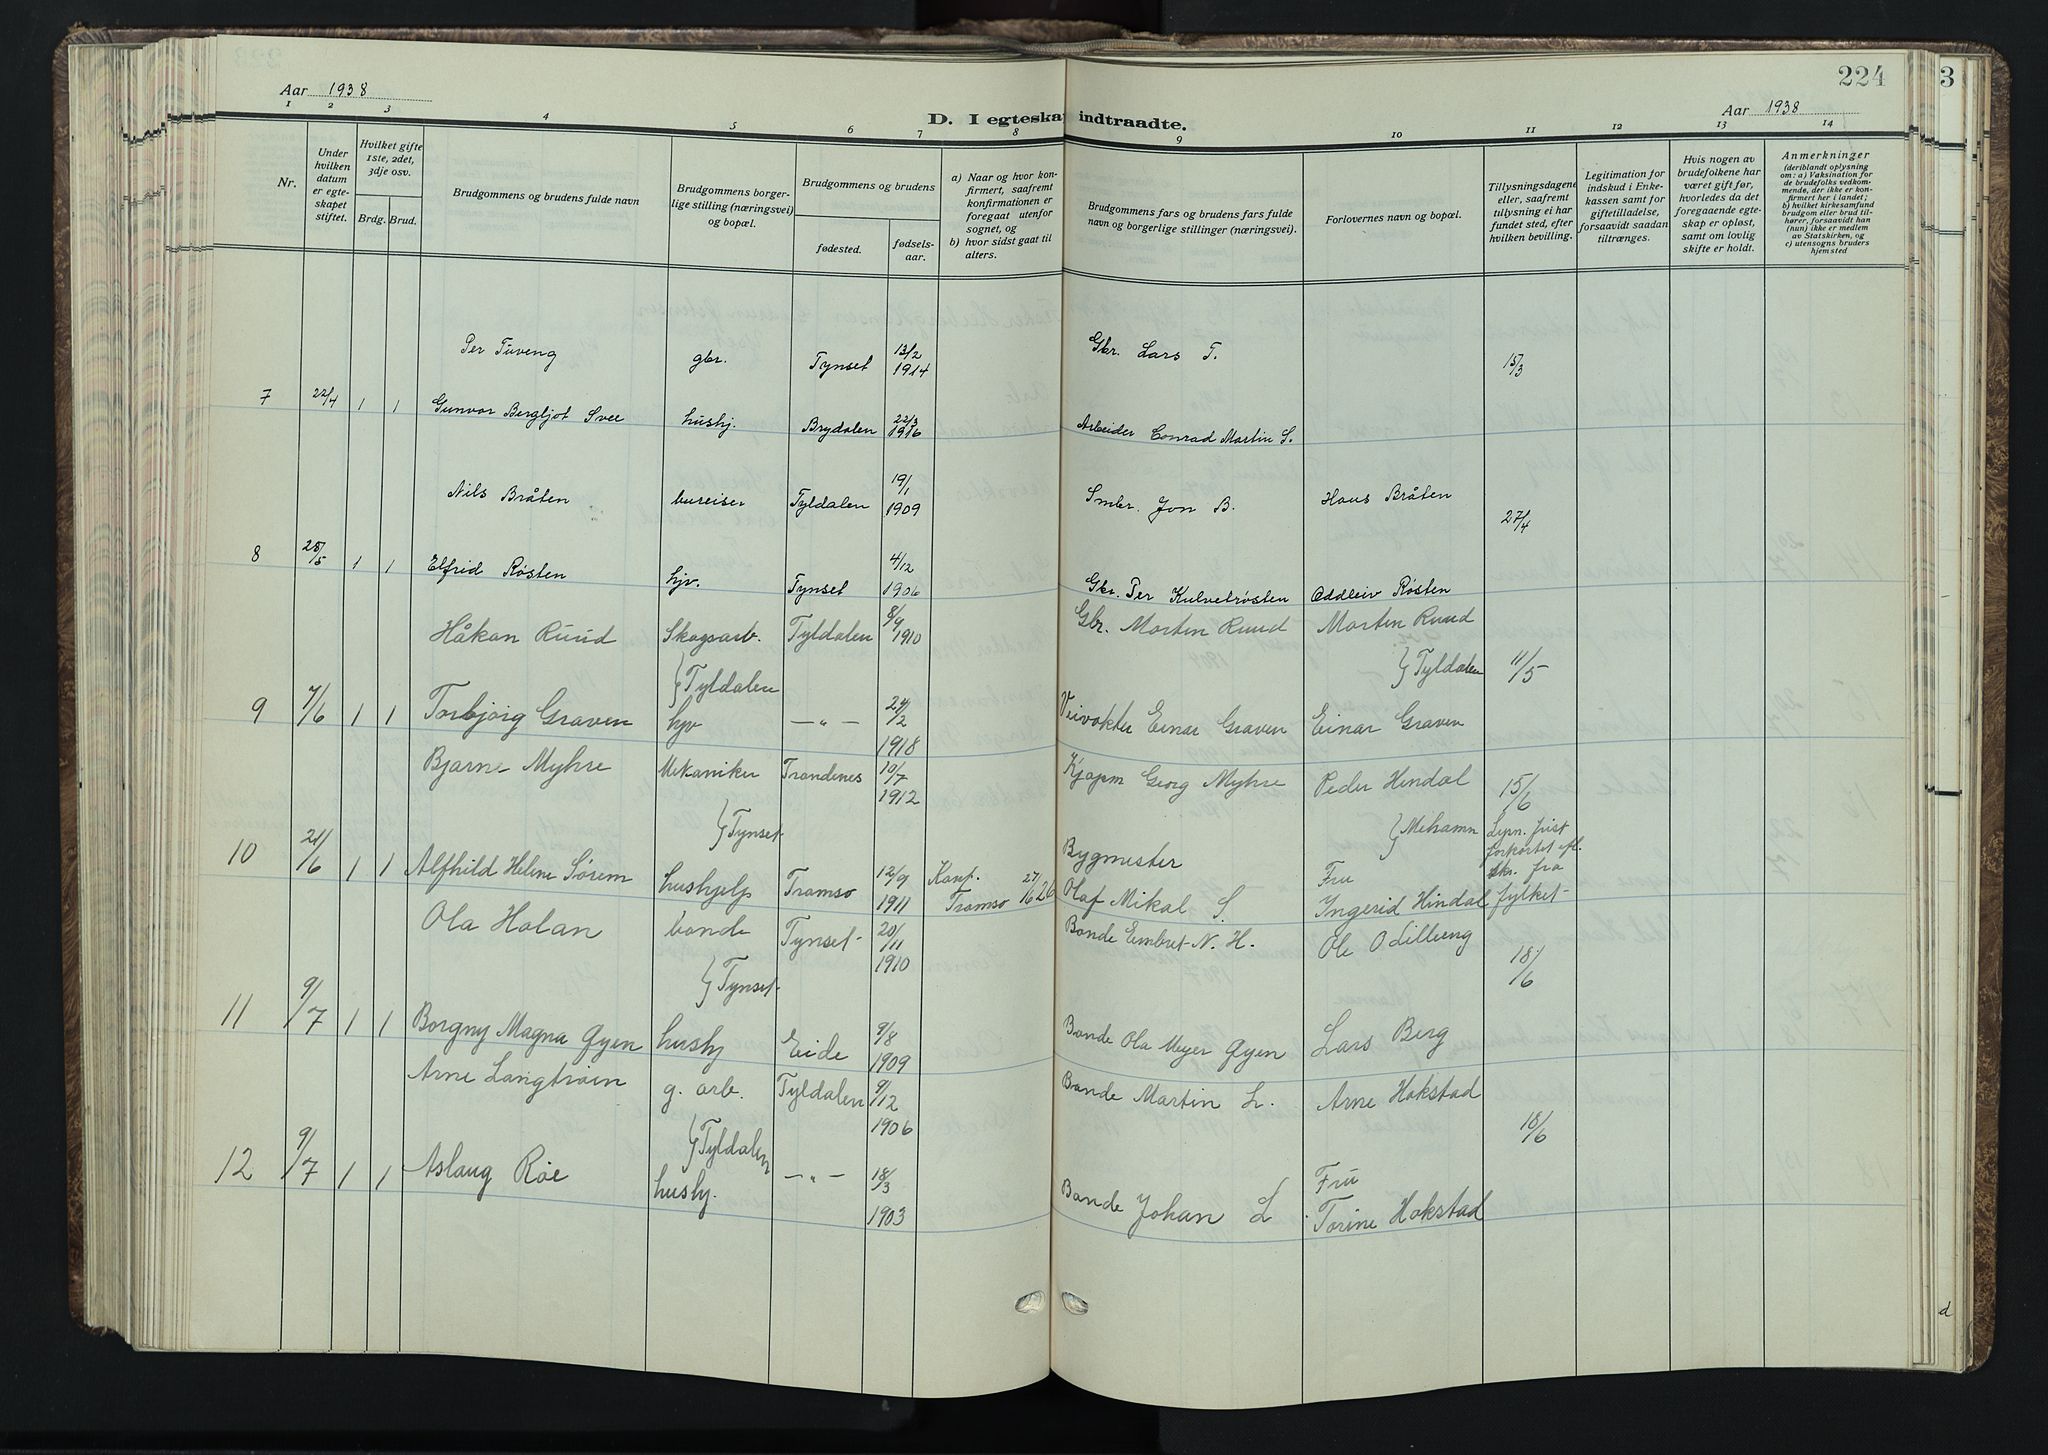 224
3
Aar 1938
Aar 1938
D. I egteska indtraadte.
1 2 3 4 5 6 7 8 9 10 11 12 13 14
Nr.
Under hvilken datum er egteskapet stiftet.
Hvilket gifte 1ste, 2det, 3dje osv.
Brdg. Brud.
Brudgommens og brudens fulde navn
Brudgommens borgerlige stilling (næringsvei) og bopæl.
Brudgommens og brudens
fødested.
fødselsaar.
a) Naar og hvor konfirmert, saafremt konfirmationen er foregaat utenfor sognet, og
b) hvor sidst gaat til alters.
Brudgommens fars og brudens fars fulde navn og borgerlige stillinger (næringsvei).
Forlovernes navn og bopæl.
Tillysningsdagene eller, saafremt tillysning ei har fundet sted, efter hvilken bevilling.
Legitimation for indskud i Enkekassen samt for giftetilladelse, forsaavidt saadan tiltrænges.
Hvis nogen av brudefolkene har været gift før, hvorledes da det foregaaende egteskap er opløst, samt om lovlig skifte er holdt.
Anmerkninger
(deriblandt oplysning om: a) Vaksination for de brudefolks vedkommende, der ikke er konfirmert her i landet; b) hvilket kirkesamfund brudgom eller brud tilhører, forsaavidt han (hun) ikke er medlem av Statskirken, og c) utensogns bruders hjemsted
Per Tuveng gbr. Tynset 13/2 1914 Gbr. Lars T. 15/3
7 22/4 1 1 Gunvor Bergljot Svee hushj. Brydalen 22/3 1916 Arbeider Conrad Martin S.
Nils Bråten bureiser Tyldalen 19/1 1909 Smbr. Jon B. Hans Bråten 27/4
8 28/5 1 1 Elfrid Røsten hjv. Tynset 4/12 1906 Gbr. Per Kulvetrøsten Oddleiv Røsten
Håkan Ruud Skogsarb. Tyldalen 8/9 1910 Gbr. Morten Ruud Morten Ruud
} Tyldalen } Tyldalen 11/5
9 7/6 1 1 Torbjørg Graven hjv — „ — 24/2 1918 Veivokter Einar Graven Einar Graven
Bjarne Myhre Mekaniker Trondenes 10/7 1912 Kjøpm Georg Myhre Peder Hindal 15/6
} Tynset } Mehamn Lysn. frist
forkortet efl.
10 21/6 1 1 Alfhild Helene Sørem hushjelp Tromsø 12/9 1911 Konf. Tromsø 27/6 26 Bygmester Olaf Mikal S. Fru Ingerid Hindal skr. fra fylket
Ola Holan bonde Tynset 20/11 1910 Bonde Embret N. H. Ole O Lilleeng
} Tynset 18/6
11 9/7 1 1 Borgny Magna Øyen hushj Eide 9/8 1909 Bonde Ola Meyer Øyen Lars Berg
Arne Langtrøen g. arb. Tyldalen 9/12 1906 Bonde Martin L. Arne Hokstad
} Tyldalen 18/6
12 9/7 1 1 Aslaug Røe hushj. — „ — 18/3 1903 Bonde Johan L. Fru Torine Hokstad
d